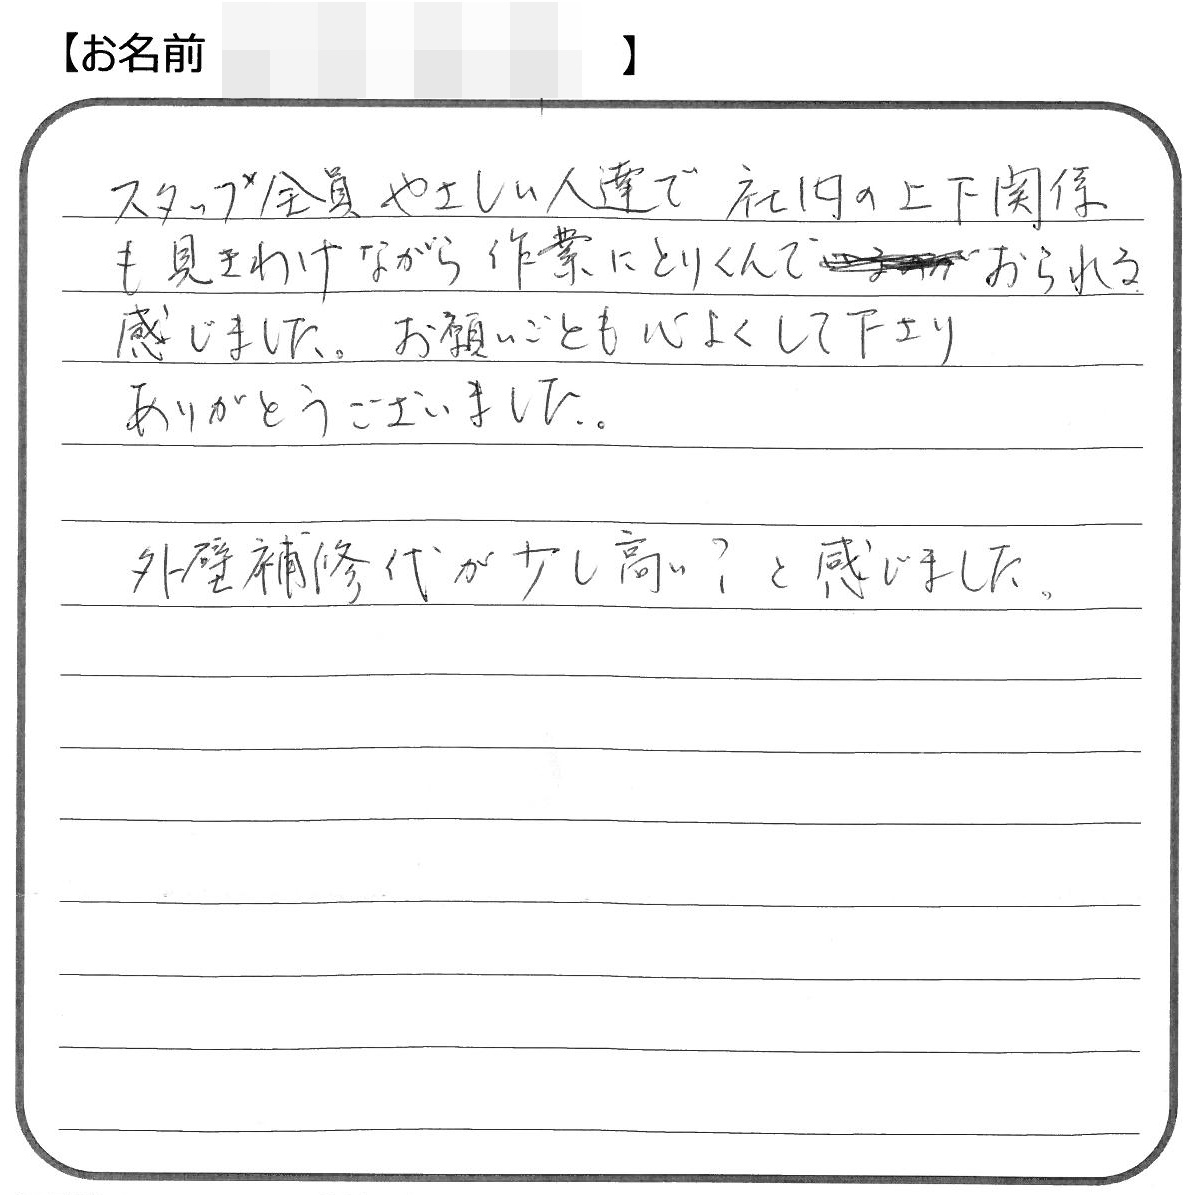 【お名前 】
スタッフ全員やさしい人達で 社内の上下関係
も見きわけながら作業にとりくんで おられる
感じました。 お願いごとも心よくして下さり
ありがとうございました。
外壁補修代が少し高い?と感じました。